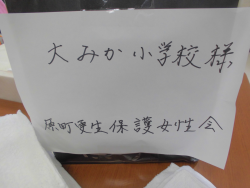 大みか小学校様
原町更生保護女性会